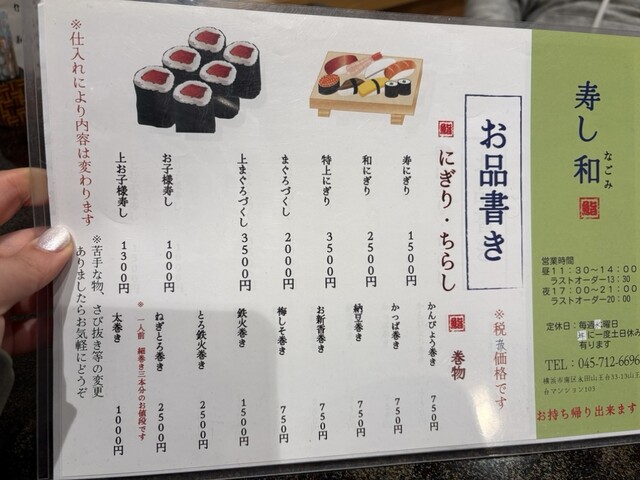 寿し和
なごみ
鮨
営業時間
昼11:30~14:00
ラストオーダー13:30
夜17:00~21:00
ラストオーダー20:00
定休日:毎週 曜日
に一度土日休み
有ります
TEL:045-712-6696
横浜市南区永田山王台33-13山王
台マンション103
お持ち帰り出来ます
お品書き
※税抜価格です
鮨 にぎり・ちらし
寿にぎり 1500円
和にぎり 2500円
特上にぎり 3500円
まぐろづくし 2000円
上まぐろづくし 3500円
お子様寿し 1000円
上お子様寿し 1300円
※仕入れにより内容は変わります
鮨 巻物
かんぴょう巻き 750円
かっぱ巻き 750円
納豆巻き 750円
お新香巻き 750円
梅しそ巻き 750円
鉄火巻き 1500円
とろ鉄火巻き 2500円
ねぎとろ巻き 2500円
※一人前 細巻き三本分のお値段です
太巻き 1000円
※苦手な物、さび抜き等の変更
ありましたらお気軽にどうぞ